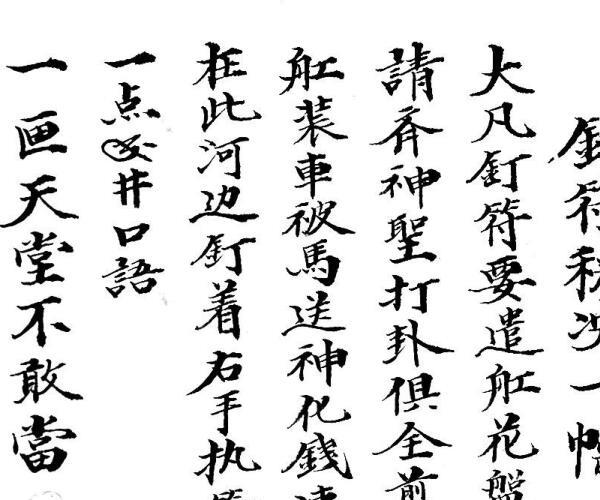 釘符秘决一
大凡釘符要遣舡花盤
請齐神聖打卦俱全前
舡装車被馬送神化錢
在此河边釘着右手执
一点井口語
一画天堂不敢當